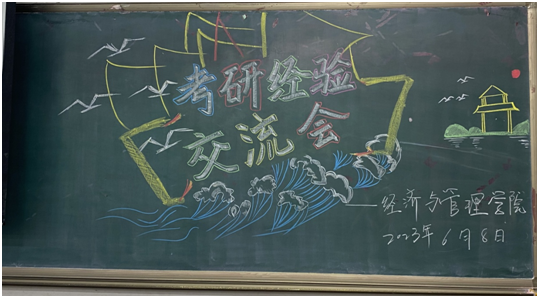 考研经验
交流会
—经济与管理学院
2023年6月8日